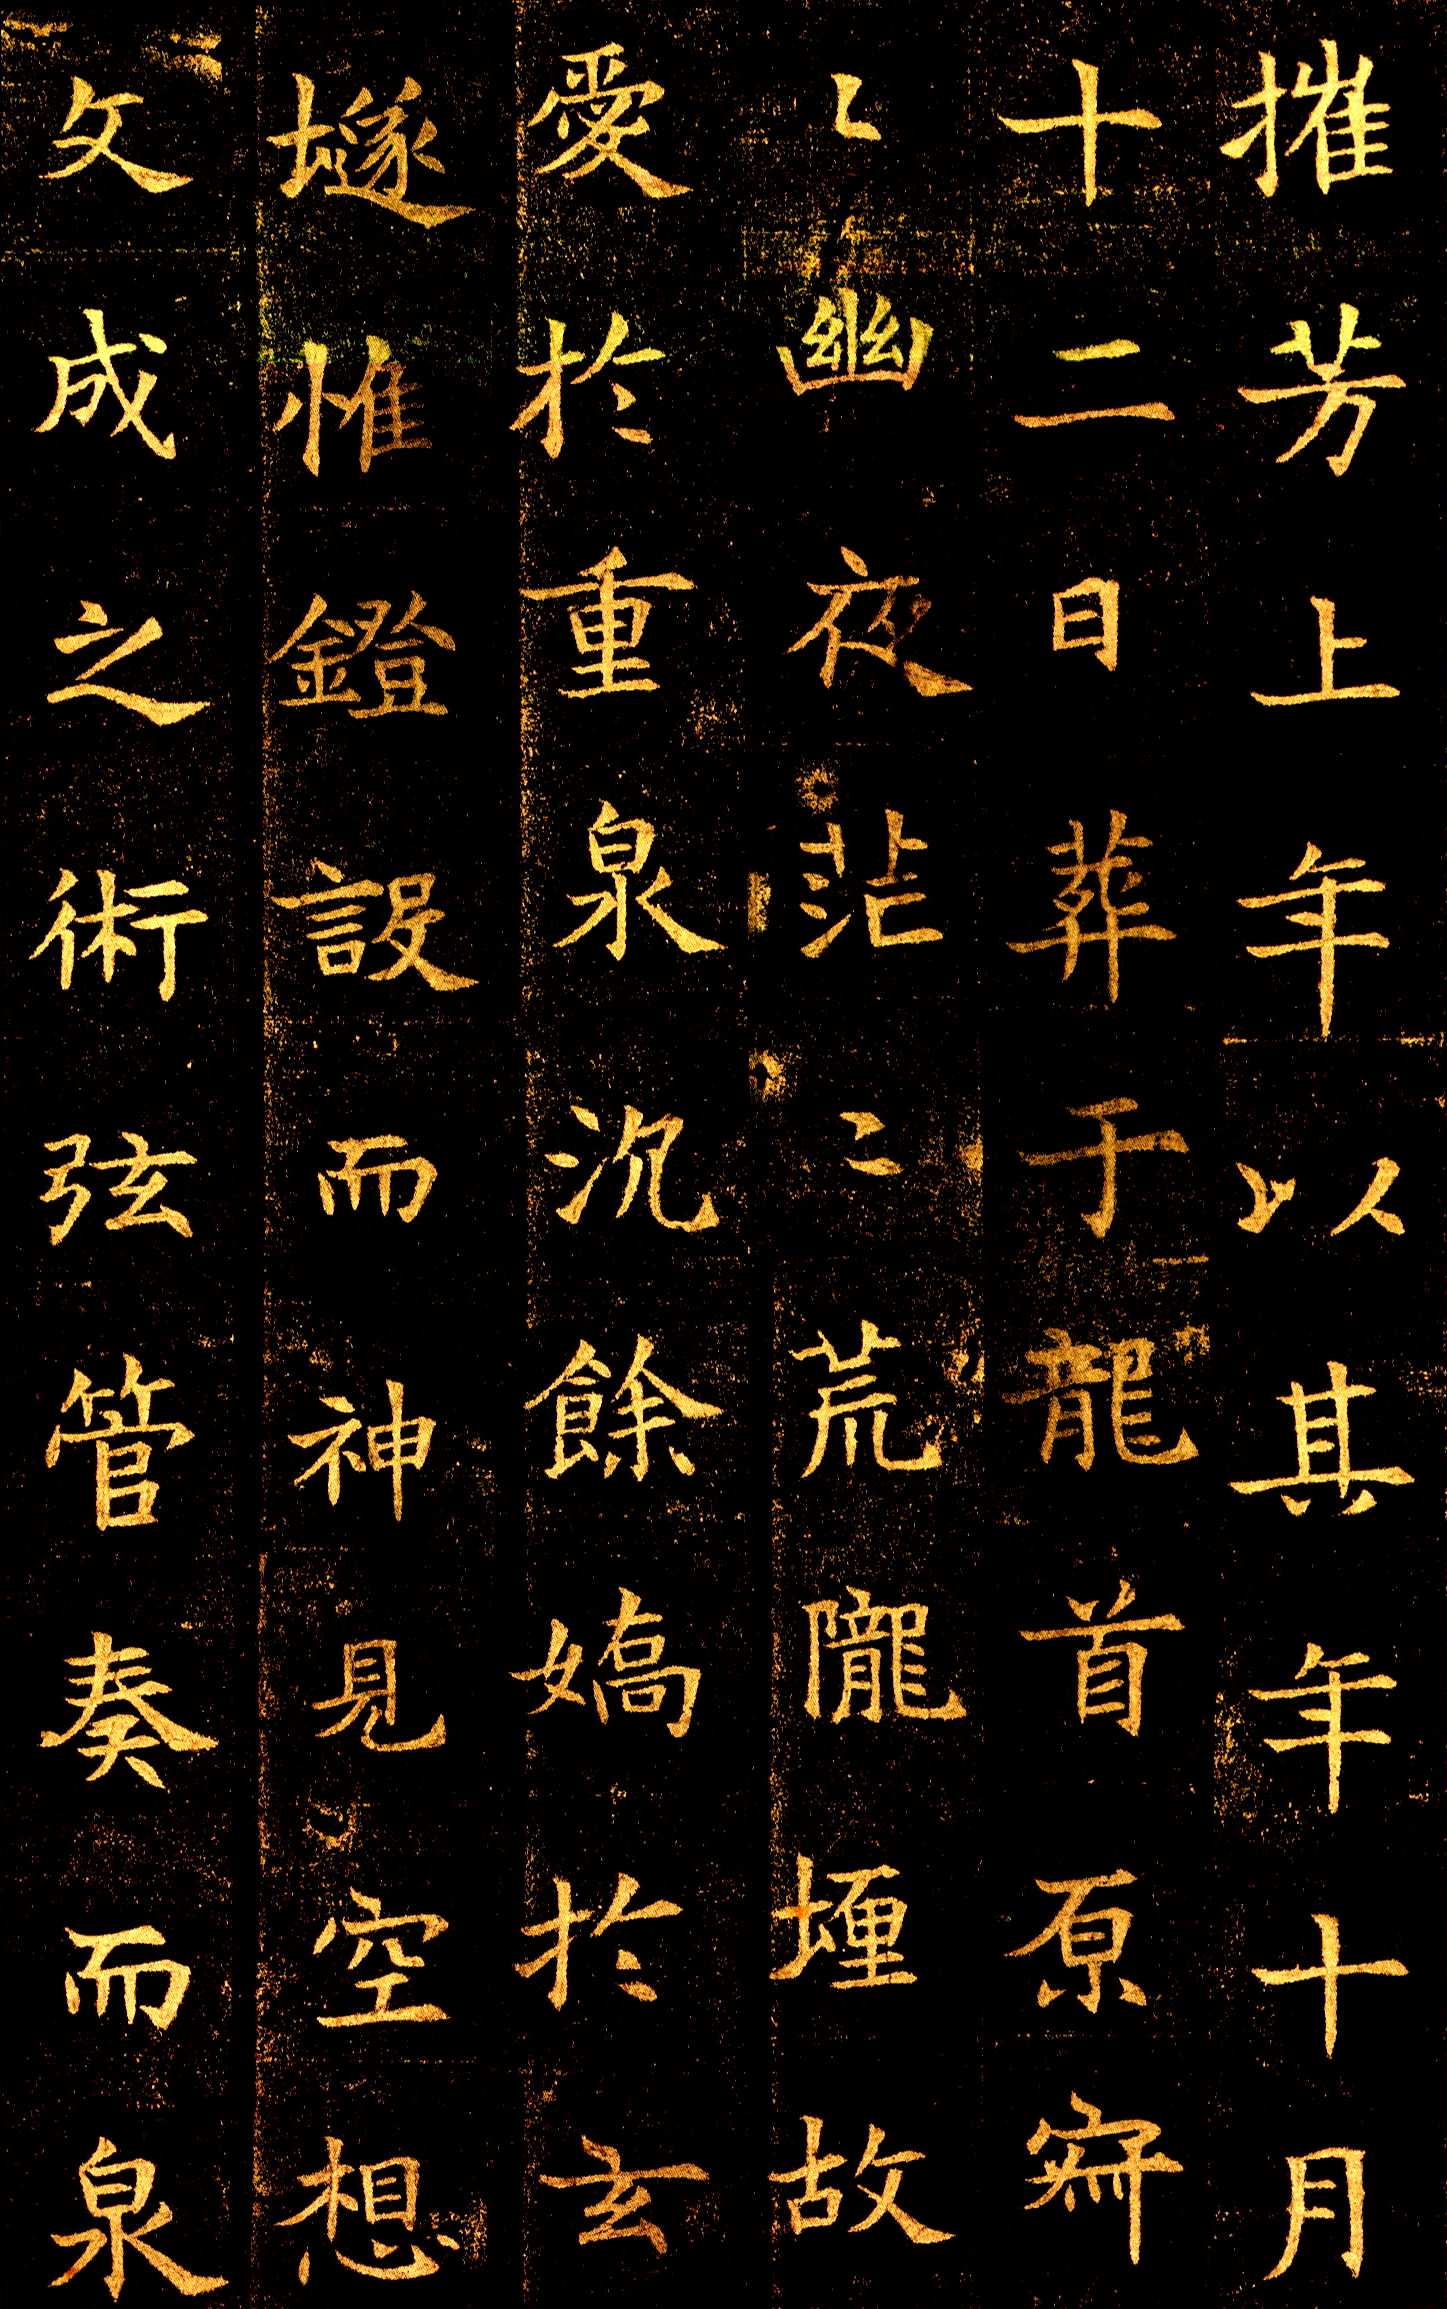 摧芳上年以其年十月
十二日葬于龍首原寂
〻幽夜茫〻荒隴埋故
愛於重泉沉餘嬌於玄
墜惟鐙設而神見空想
文成之術弦管奏而泉